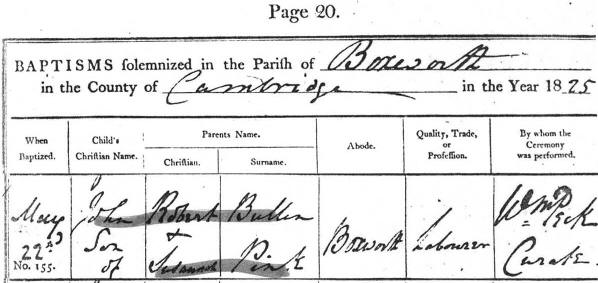 Page 20.
BAPTISMS solemnized in the Parish of Boxworth
in the County of Cambridge in the Year 1825
When Baptized.
Child's Christian Name.
Parents Name.
Christian.
Surname.
Abode.
Quality, Trade, or Profession.
By whom the Ceremony was performed.
May
22nd
No. 155.
John
Son
of
Robert
&
Susannah
Bullen
Pink
Boxworth
Labourer
Wm Peck
Curate.